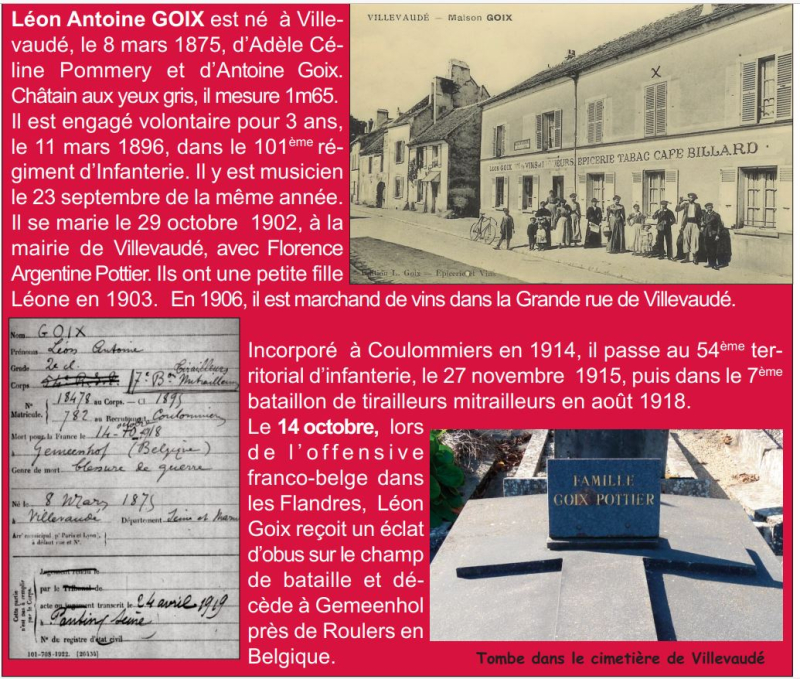 Léon Antoine GOIX est né à Ville-
vaudé, le 8 mars 1875, d'Adèle Cé-
line Pommery et d'Antoine Goix.
Châtain aux yeux gris, il mesure 1m65.
Il est engagé volontaire pour 3 ans,
le 11 mars 1896, dans le 101ème ré-
giment d'Infanterie. Il y est musicien
le 23 septembre de la même année.
Il se marie le 29 octobre 1902, à la
mairie de Villevaudé, avec Florence
Argentine Pottier. Ils ont une petite fille
Léone en 1903. En 1906, il est marchand de vins dans la Grande rue de Villevaudé.
VILLEVAUDÉ — Maison GOIX
X
LÉON GOIX VINS EPICERIE TABAC CAFE BILLARD
L. Goix — Epicerie et Vins
Nom. GOIX
Prénoms Léon Antoine
Grade 2e cl.
Corps 7e Bon Tirailleurs Mitrailleurs
N° 18478 au Corps. — Cl 1895
Matricule. 782 au Recrutement Coulommiers
Mort pour la France le 14 octobre 1918
à Gemeenhof (Belgique)
Genre de mort blessure de guerre
Né le 8 Mars 1875
à Villevaudé Département Seine et Marne
Arrt municipal (pr Paris et Lyon),
à défaut rue et N°.
Cette partie n'est pas à remplir par le Corps.
Jugement rendu le
par le Tribunal de
acte ou jugement transcrit le 24 avril 1919
à Pantin Seine
N° du registre d'état civil
101-708-1922. [26434]
Incorporé à Coulommiers en 1914, il passe au 54ème ter-
ritorial d'infanterie, le 27 novembre 1915, puis dans le 7ème
bataillon de tirailleurs mitrailleurs en août 1918.
Le 14 octobre, lors
de l'offensive
franco-belge dans
les Flandres, Léon
Goix reçoit un éclat
d'obus sur le champ
de bataille et dé-
cède à Gemeenhol
près de Roulers en
Belgique.
FAMILLE
GOIX POTTIER
Tombe dans le cimetière de Villevaudé